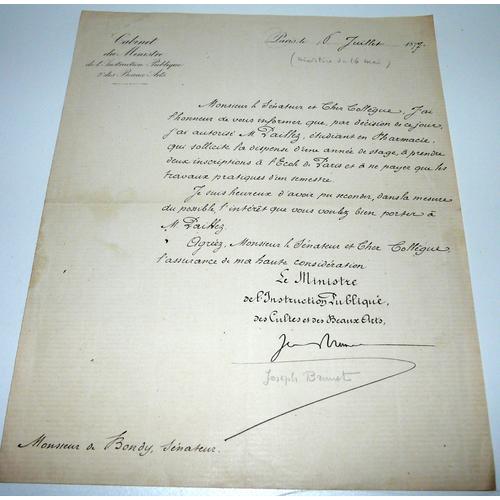 Cabinet
du Ministre
de l'Instruction Publique
& des Beaux-Arts
Paris, le 6 Juillet 1877
(ministère du 16 mai)
Monsieur le Sénateur et Cher Collègue, J'ai
l'honneur de vous informer que, par décision de ce jour,
j'ai autorisé M. Paillez, étudiant en Pharmacie,
qui sollicite la dispense d'une année de stage, à prendre
deux inscriptions à l'École de Paris et à ne payer que les
travaux pratiques d'un semestre.
Je suis heureux d'avoir pu seconder, dans la mesure
du possible, l'intérêt que vous voulez bien porter à
M. Paillez.
Agréez, Monsieur le Sénateur et Cher Collègue,
l'assurance de ma haute considération
Le Ministre
de l'Instruction Publique,
des Cultes et des Beaux Arts,
Joseph Brunet
Monsieur de Bondy, Sénateur.